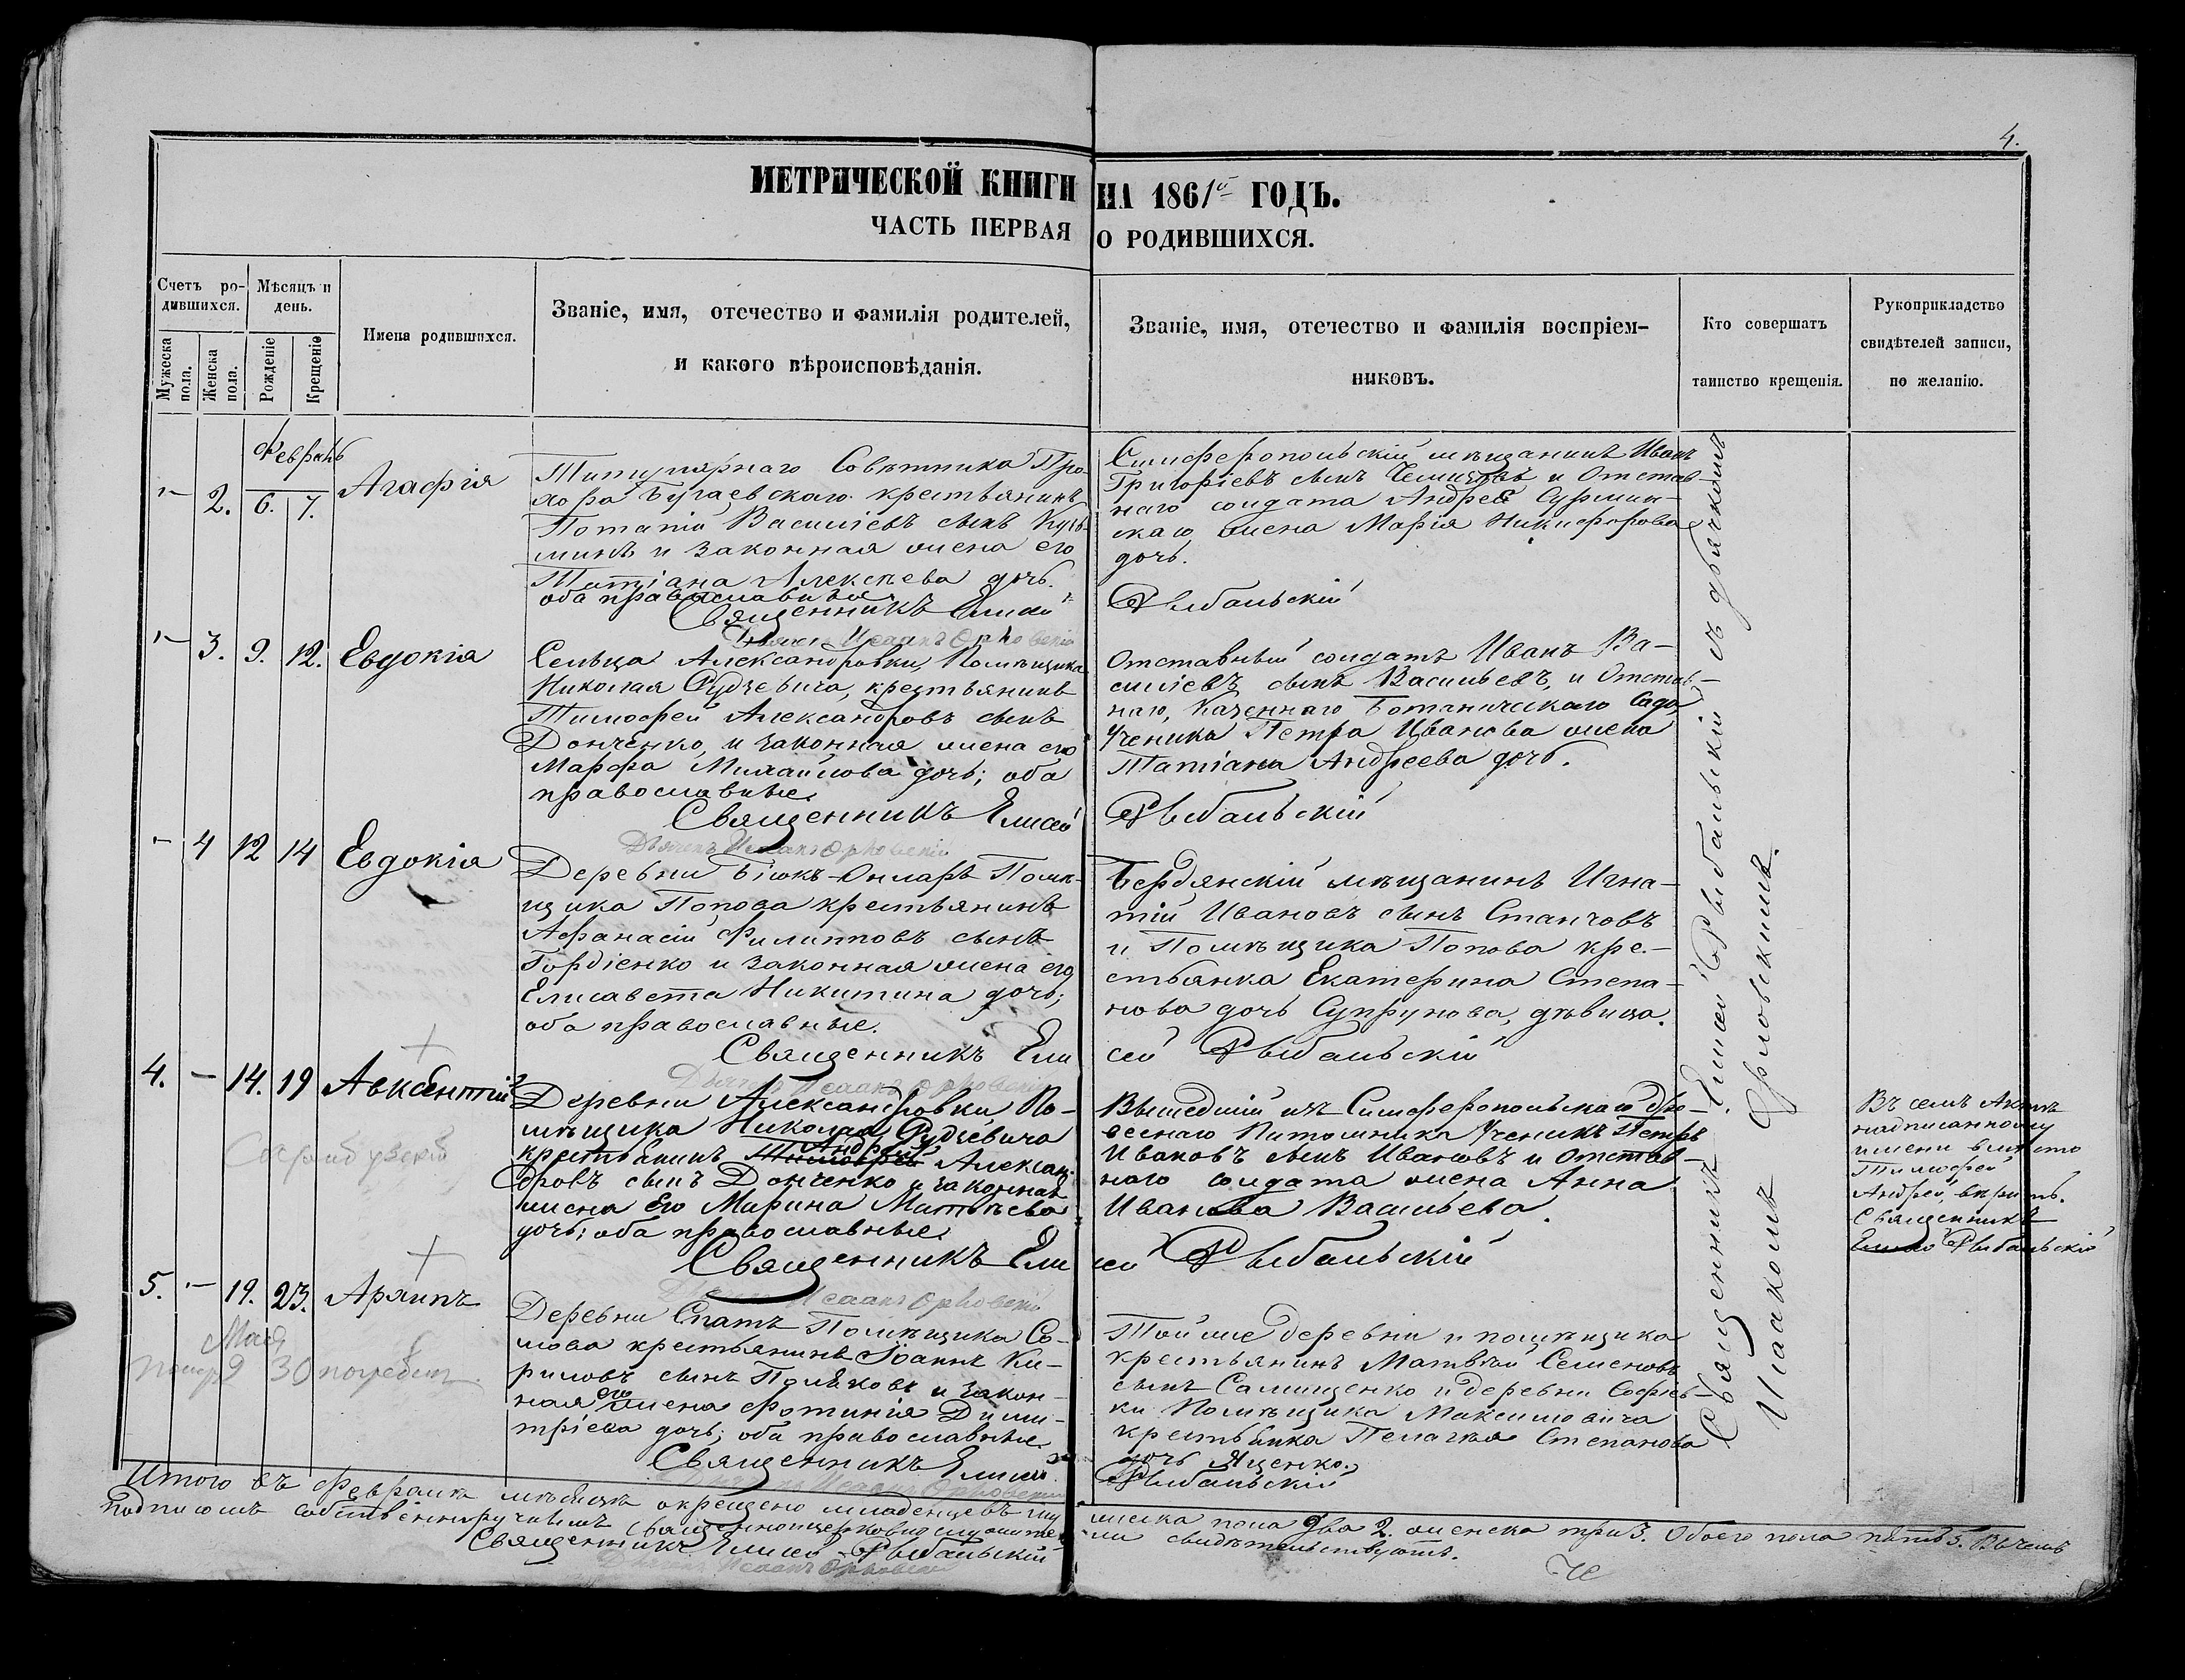 4.
МЕТРИЧЕСКОЙ КНИГИ НА 1861й ГОДЪ.
ЧАСТЬ ПЕРВАЯ О РОДИВШИХСЯ.
Счетъ ро-
дившихся.
Мужеска пола.
Женска пола.
Мѣсяцъ и
день.
Рожденіе
Крещеніе
Имена родившихся.
Званіе, имя, отечество и фамилія родителей,
и какого вѣроисповѣданія.
Званіе, имя, отечество и фамилія воспріем-
никовъ.
Кто совершатъ
таинство крещенія.
Рукоприкладство
свидѣтелей записи,
по желанію.
Февраль
2. 6. 7. Агафія
Титулярнаго Совѣтника Про-
хора Бугаевскаго крестьянинъ
Потапій Василіевъ сынъ Кузь-
минъ и законная жена его
Татіана Алексѣева дочь.
оба православные.
Священникъ Елисей
Дьячекъ Исаакъ Орловскій
Симферопольскій мѣщанинъ Иванъ
Григоріевъ сынъ и Отстав-
наго солдата Андрея
жена Марія Никифорова
дочь.
Рыбальскій
3. 9. 12. Евдокія
Сельца Александровки, Помѣщика
Николая Рудзевича, крестьянинъ
Тимофей Александровъ сынъ
Донченко, и законная жена его
Марфа Михайлова дочь; оба
православные.
Священникъ Елисей
Дьячекъ Исаакъ Орловскій
Отставный солдатъ Иванъ Ва-
силіевъ сынъ Васильевъ, и Отстав-
наго, Казеннаго Ботаническаго Сада,
Ученика Петра Иванова жена
Татіана Андреева дочь.
Рыбальскій
4 12 14 Евдокія
Деревни Біюкъ-Онларъ Помѣ-
щика Попова крестьянинъ
Афанасій Филипповъ сынъ
Гордіенко и законная жена его
Елисавета Никитина дочь;
оба православные.
Священникъ Ели
Дьячекъ Исаакъ Орловскій
Бердянскій мѣщанинъ Игна-
тій Ивановъ сынъ Станчовъ
и Помѣщика Попова кре-
стьянка Екатерина Степа-
нова дочь Супрунова, дѣвица.
сей Рыбальскій
4. - 14. 19 Авксентій
Деревни Александровки По-
мѣщика Николая Рудзевича
Андрей
крестьянинъ Тимофей Александ-
ровъ сынъ Донченко и законная
жена Его Марина Матѣева
дочь; оба православные.
Священникъ Ели
Вышедшій изъ Симферопольскаго дре-
веснаго Питомника Ученикъ Петръ
Ивановъ сынъ Ивановъ и отстав-
наго солдата жена Анна
Иванова Васильева.
сей Рыбальскій
Въ семъ Актѣ
надписанному
имени вмѣсто
Тимофей
Андрей, вѣрить.
Священникъ
Елисей Рыбальскій
5. - 19. 23. Архипъ
Мая
помер 29 30 погребен
Деревни Спатъ Помѣщика Со-
мова крестьянинъ Іоаннъ Ки-
риловъ сынъ Поляковъ и закон-
ная его жена Фотинія Дими-
тріева дочь; оба православные.
Священникъ Елисей
Дьячекъ Исаакъ Орловскій
Той же деревни и помѣщика
крестьянинъ Матвѣй Семеновъ
сынъ Самищенко и деревни Софіев-
ки Помѣщика Максимовича
крестьянка Пелагѣя Степанова
дочь Яценко.
Рыбальскій
Священникъ Елисей Рыбальскій съ дьячкомъ
Исаакомъ Орловскимъ.
Итого въ Февралѣ мѣсяцѣ окрещено младенцевъ му
жеска пола два 2. женска три 3. Обоего пола пять 5. Въ чемъ
подписомъ собственноручнымъ священноцерковнослужите
ли свидѣтельствуютъ.
Священникъ Елисей Рыбальскій
Дьячекъ Исаакъ Орловскій